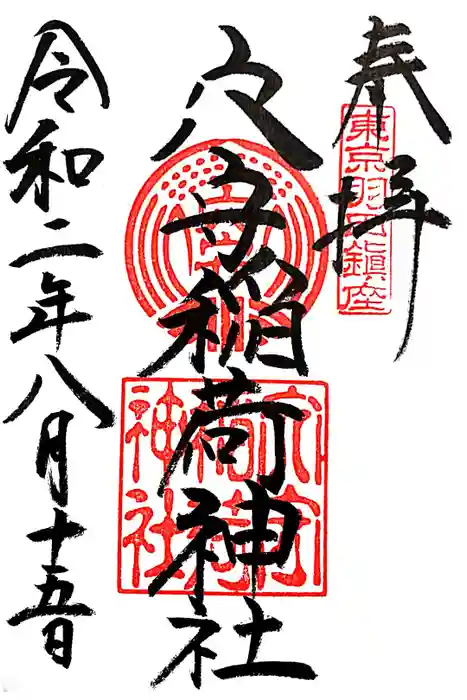 奉拝
東京羽田鎮座
穴守稲荷神社
穴守
稲荷
神社
令和二年八月十五日